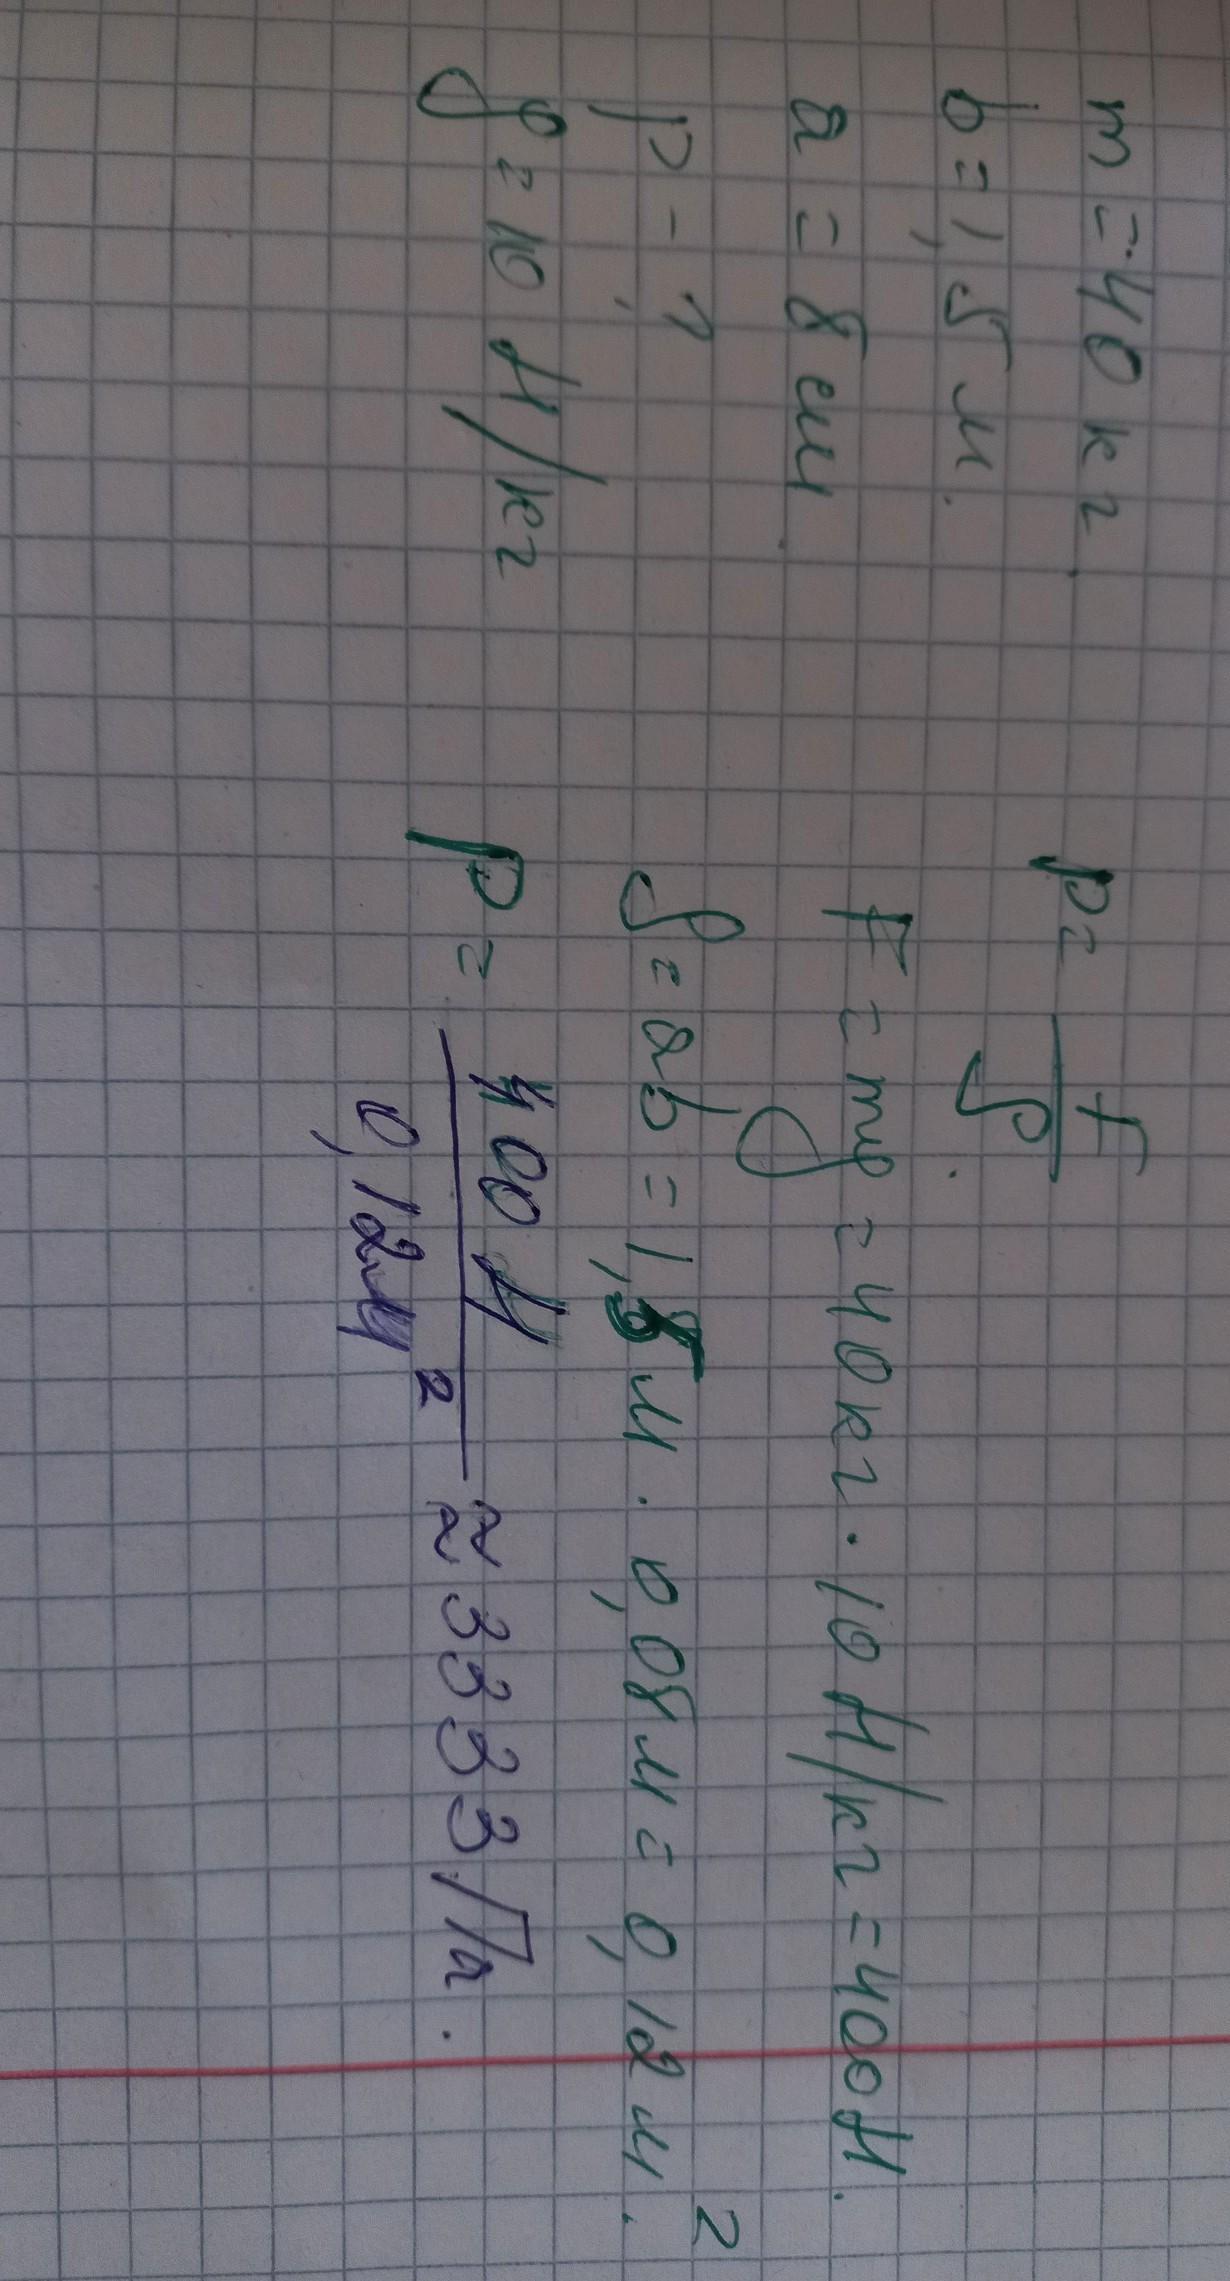 m = 40 кг.
b = 1,5 м.
a = 8 см
p - ?
g = 10 Н/кг
p = F/S.
F = mg = 40 кг · 10 Н/кг = 400 Н.
S = ab = 1,5 м · 0,08 м = 0,12 м².
p = 400 Н / 0,12 м² ≈ 3333 Па.